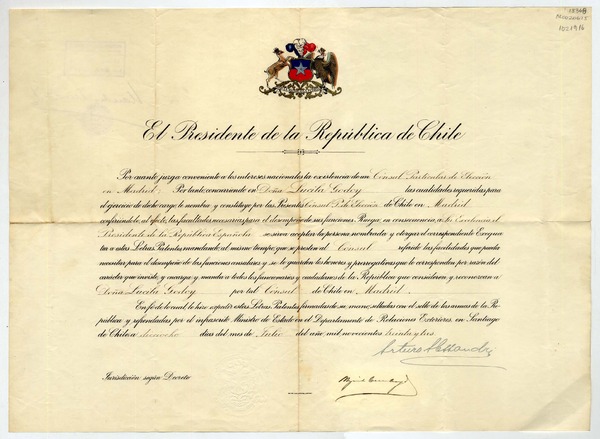 1021916
El Presidente de la República de Chile
Por cuanto juzga conveniente a los intereses nacionales la existencia de un Consul Particular de Elección
en Madrid. Por tanto, concurriendo en Doña Lucila Godoy las cualidades requeridas para
el ejercicio de dicho cargo, le nombra y constituye por las Presentes Consul P. de Elección de Chile en Madrid
confiriéndole, al efecto, las facultades necesarias para el desempeño de sus funciones. Ruega, en consecuencia, a Su Excelencia el
Presidente de la República Española se sirva aceptar la persona nombrada y otorgar el correspondiente Exequa-
tur a estas Letras Patentes, mandando, al mismo tiempo, que se presten al Consul referido las facilidades que pueda
necesitar para el desempeño de las funciones consulares y se le guarden los honores y prerrogativas que le corresponden por razón del
carácter que inviste, y encarga y manda a todos los funcionarios y ciudadanos de la República que consideren y reconozcan a
Doña Lucila Godoy por tal Consul de Chile en Madrid.
En fe de lo cual le hice expedir estas Letras Patentes, firmadas de su mano, selladas con el sello de las armas de la Re-
pública y refrendadas por el infrascrito Ministro de Estado en el Departamento de Relaciones Exteriores, en Santiago
de Chile a dieciocho días del mes de Julio del año mil novecientos treinta y tres
Arturo Alessandri
Jurisdicción según Decreto